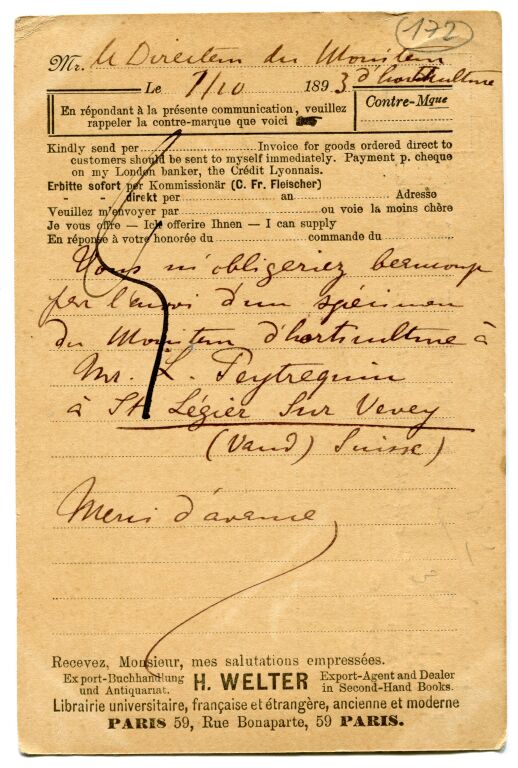 172
Mr. le Directeur du Moniteur
d'horticulture
Le 7/10 1893
En répondant à la présente communication, veuillez
rappeler la contre-marque que voici
Contre-Mque
Kindly send per Invoice for goods ordered direct to
customers should be sent to myself immediately. Payment p. cheque
on my London banker, the Crédit Lyonnais.
Erbitte sofort per Kommissionär (C. Fr. Fleischer)
" " direkt per an Adresse
Veuillez m'envoyer par ou voie la moins chère
Je vous offre — Ich offerire Ihnen — I can supply
En réponse à votre honorée du commande du
Vous m'obligeriez beaucoup
par l'envoi d'un spécimen
du Moniteur d'horticulture à
Mr. L. Peytrequin
à St Légier sur Vevey
(Vaud) Suisse)
Merci d'avance
Recevez, Monsieur, mes salutations empressées.
Export-Buchhandlung
und Antiquariat.
H. WELTER
Export-Agent and Dealer
in Second-Hand Books.
Librairie universitaire, française et étrangère, ancienne et moderne
PARIS 59, Rue Bonaparte, 59 PARIS.